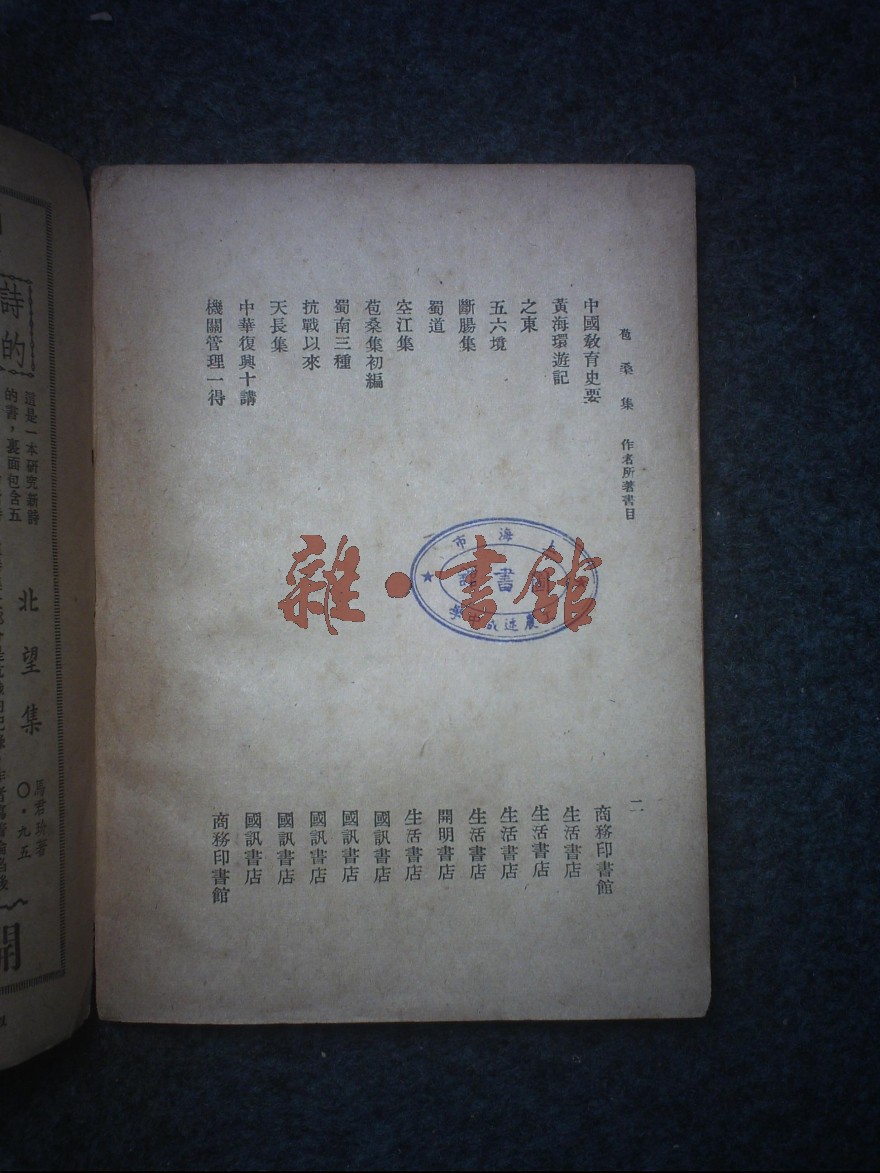 苞桑集 作者所著書目 二
中國教育史要 商務印書館
黃海環遊記 生活書店
之東 生活書店
五六境 生活書店
斷腸集 生活書店
蜀道 開明書店
空江集 生活書店
苞桑集初編 國訊書店
蜀南三種 國訊書店
抗戰以來 國訊書店
天長集 國訊書店
中華復興十講 國訊書店
機關管理一得 商務印書館
雜·書館
海市
書
詩
的
這是一本研究新詩
的書，裏面包含五
北望集
馬君玠著
〇·九五
開